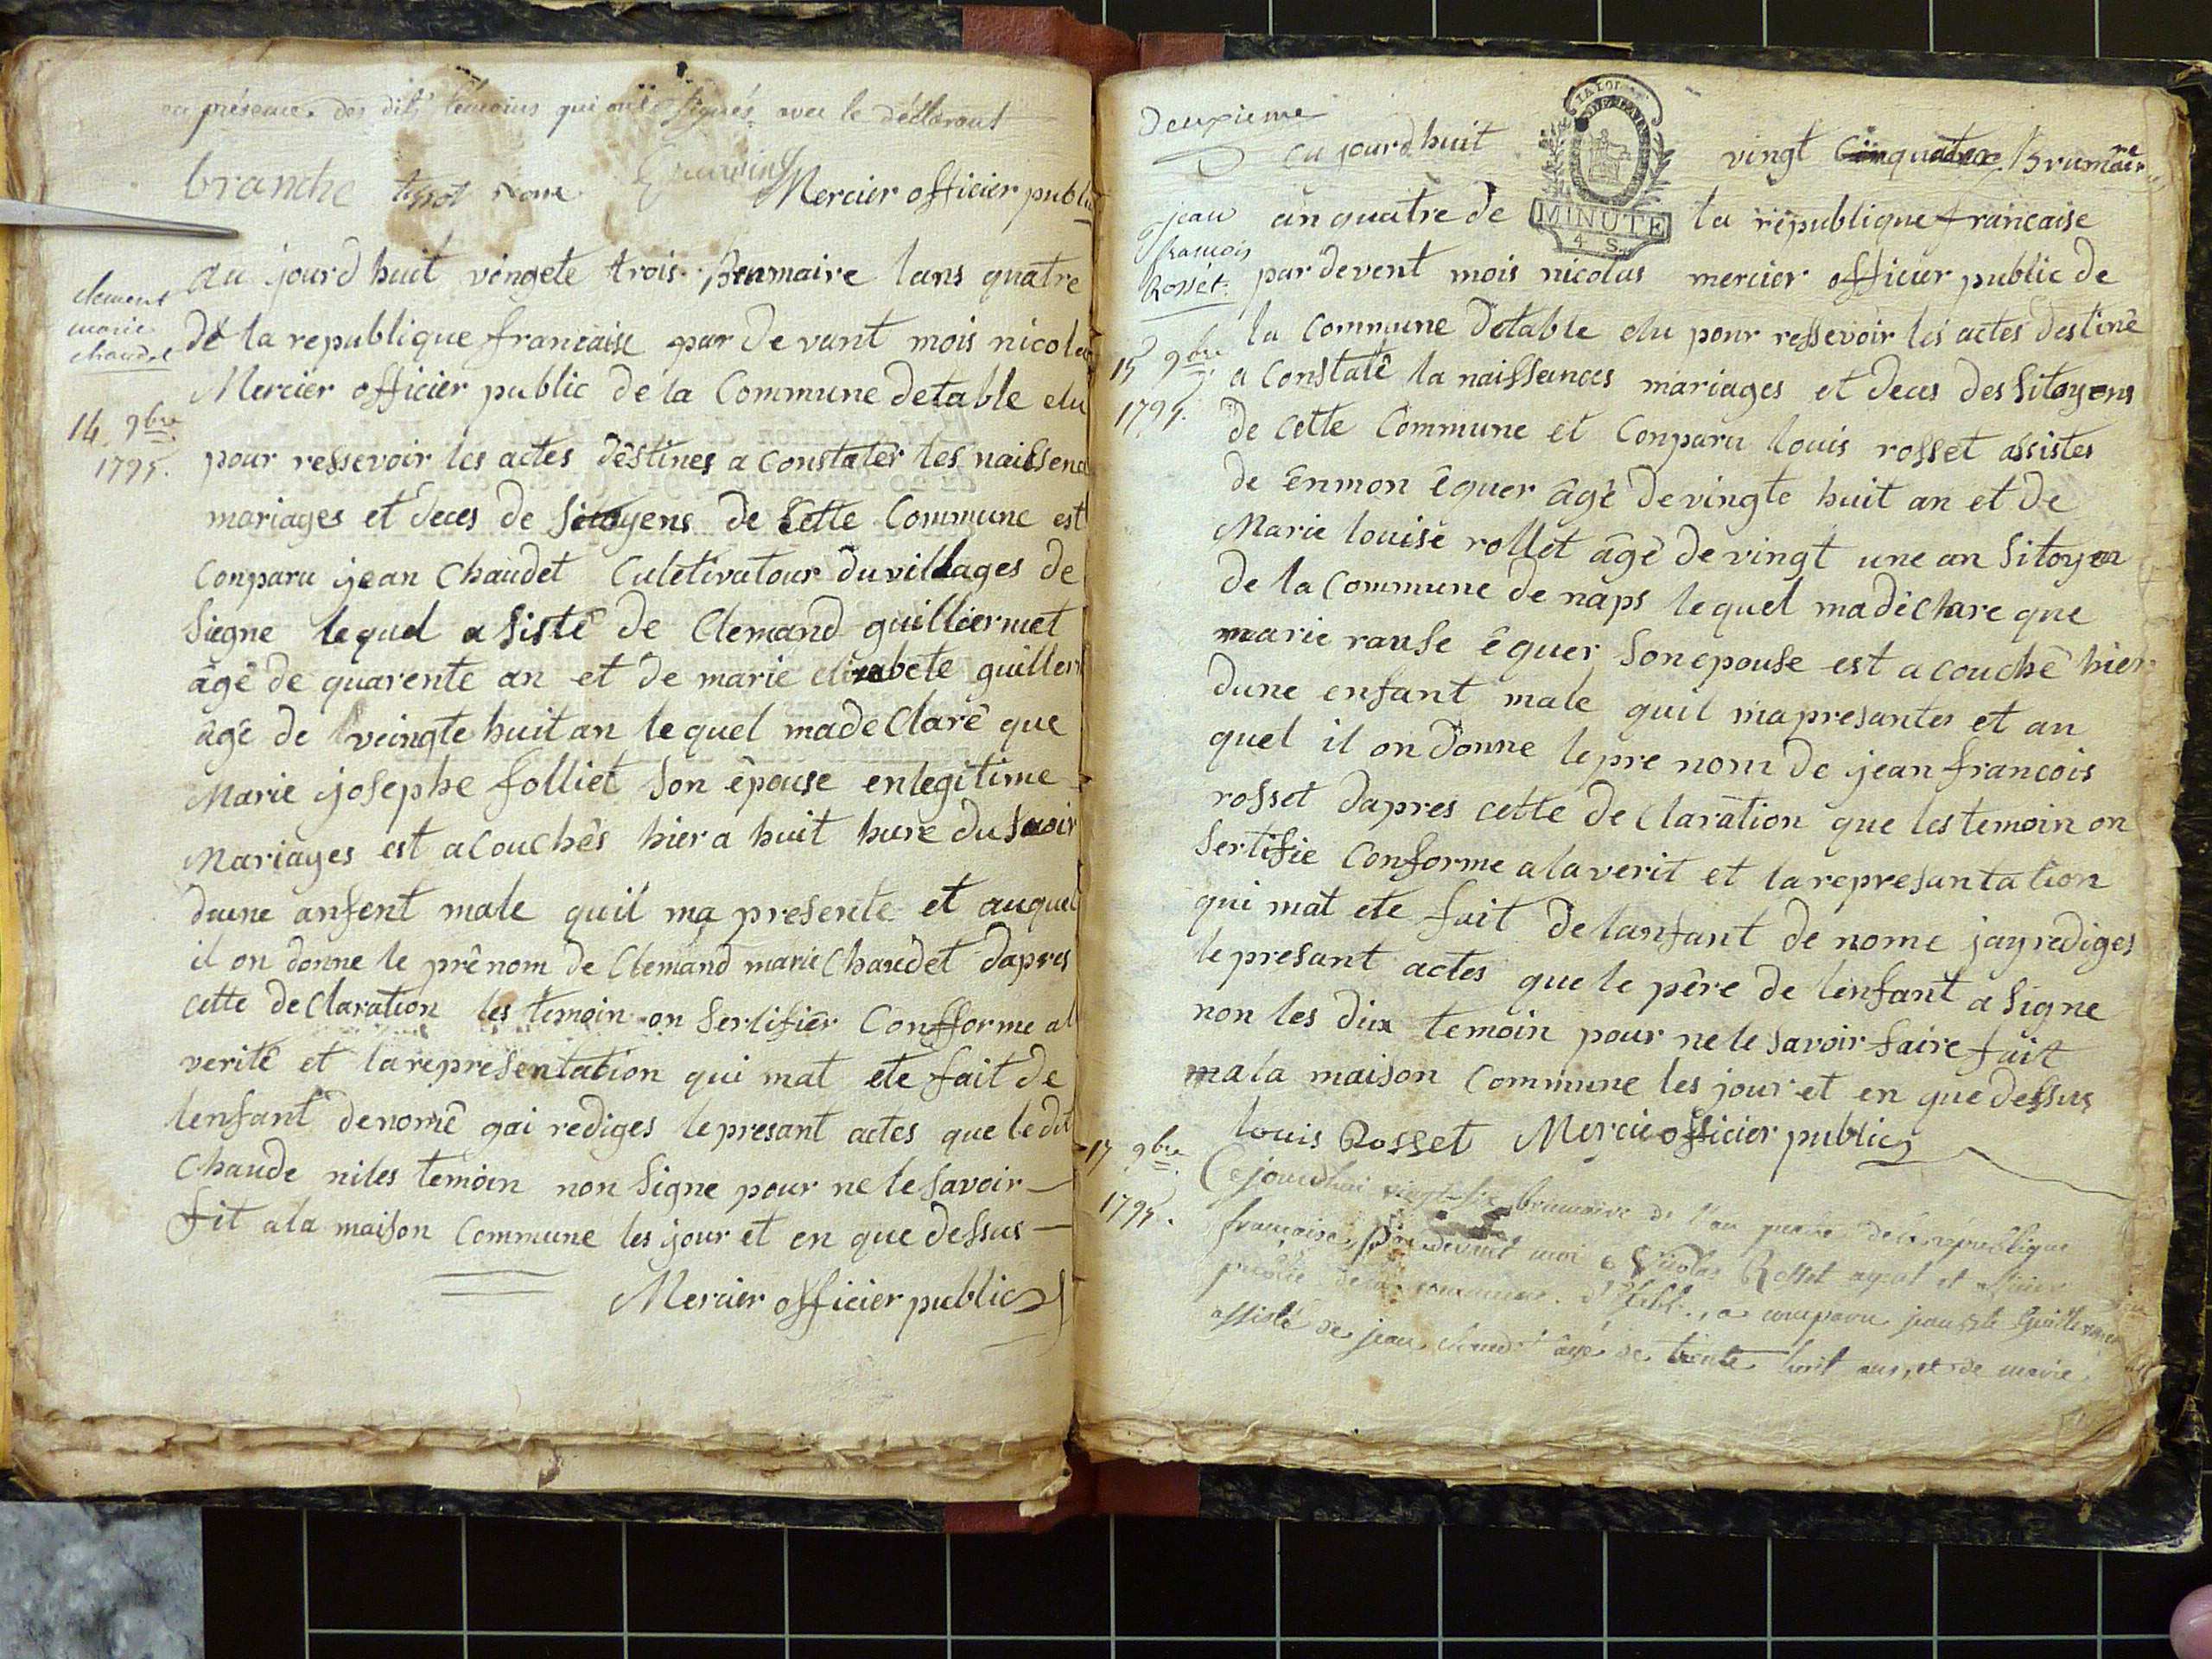 en présence des dits témoins qui ont signés avec le déclarant
branche Mercier officier public
clement
marie
chaudet
14. 9bre
1795.
au jourd huit vingete trois Brumaire lans quatre
de la republique francaise par devant mois nicolas
Mercier officier public de la Commune detable elu
pour ressevoir les actes destines a constater les naissence
mariages et deces de sitoyens de Sette Commune est
Conparu jean Chaudet Culetivatour du villages de
Siegne lequel a sistê de Clemand guilliermet
âgê de quarente an et de marie elizabete guillerm
âgé de veingte huit an lequel madeclarê que
Marie josephe folliet son êpouse enlegitime
Mariages est acouchês hier a huit hure du Saoir
daune anfent male quil ma presente et auquel
il on donne le prênom de Clemand marie Chaudet dapres
cette declaration les temoin on Sertifiér Confforme al
veritê et lareprésentation qui mat ete fait de
lenfant denomê gai rediges lepresant actes que ledit
Chaude niles temoin non Signe pour ne le Savoir
fit ala maison Commune les jour et en que dessus
Mercier officier public
Deuxieme
LA LOI
MINUTE
4 S.
au jourd huit vingt quatre Brumaire
jean
francois
Rosset.
15 9bre
1795.
an quatre de la rêpublique francaise
par devent mois nicolas mercier officier public de
la Commune detable elu pour ressevoir les actes destinê
a Constatê la naissances mariages et deces des Sitoyens
de cette Commune et Conparu louis rosset assistes
de Enmon êquer âgé de vingte huit an et de
Marie louise rollet âgê de vingt une an Sitoyen
de la Commune de naps lequel madêchare que
marie ranse êquer Son epouse est a couchê hier
dune enfant male quil mapresantes et an
quel il on donne lepre nom de jean francois
rosset dapres cette declaration que les temoin on
Sertifie Conforme a la verit et la represantation
qui mat ete fait de lanfant de nome jay rediges
lepresant actes que le pêre de lenfant a Signe
non les dix temoin pour ne le Savoir faire fait
a la maison Commune les jour et en que dessus
louis Rosset Mercie officier public
17 9bre
1795.
Cejourdhui vingt-six brumaire de l'an quatre de la république
francaise, Par devant moi Nicolas Rosset agent et officier
public de la commune d'Etable, a comparu jean Bte Guillermet
assisté de jean chaudet âgé de trente huit ans, et de marie